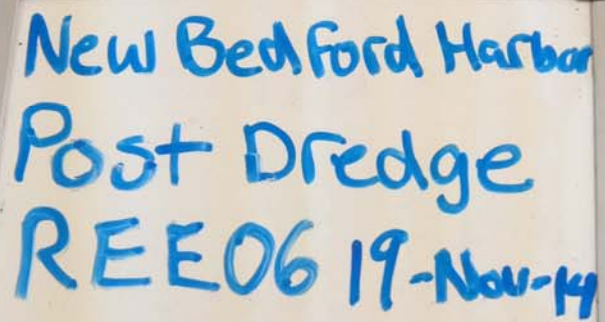 New Bedford Harbor
Post Dredge
REE06 19-Nov-14